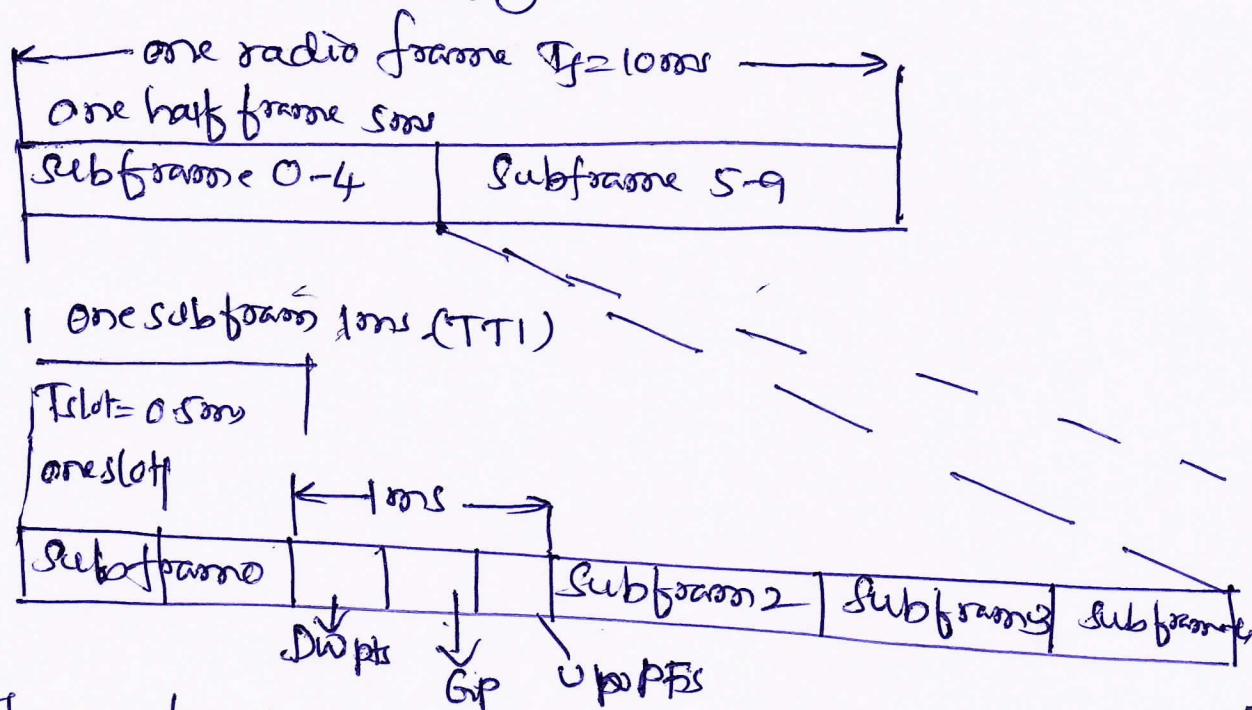 one radio frame Tf=10ms
one half frame 5ms
Subframe 0-4 Subframe 5-9
one subfram 1ms (TTI)
Tslot= 0.5ms
one slot
1ms
Subframo Subfram2 Subfram3 Subframe
Dwpts Gp UpPTs